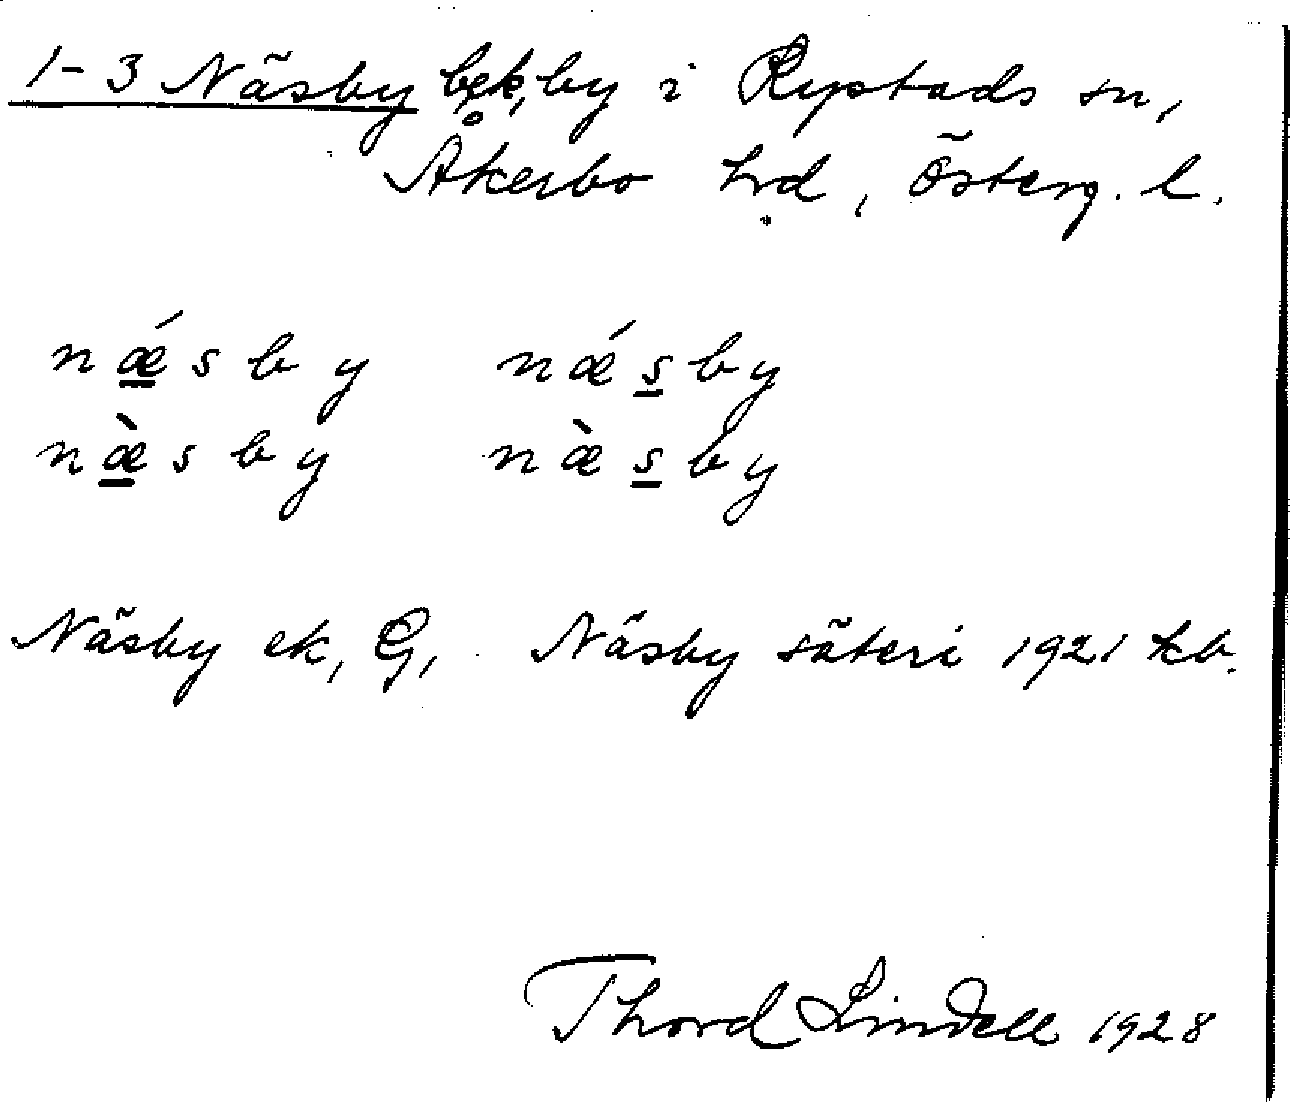 1-3 Näsby bek, by i Rystads sn,
Åkerbo hrd, Österg. l.
nǽsby nǽsby
næ̀sby næ̀sby
Näsby ek, G, Näsby säteri 1921 kb.
Thord Lindell 1928